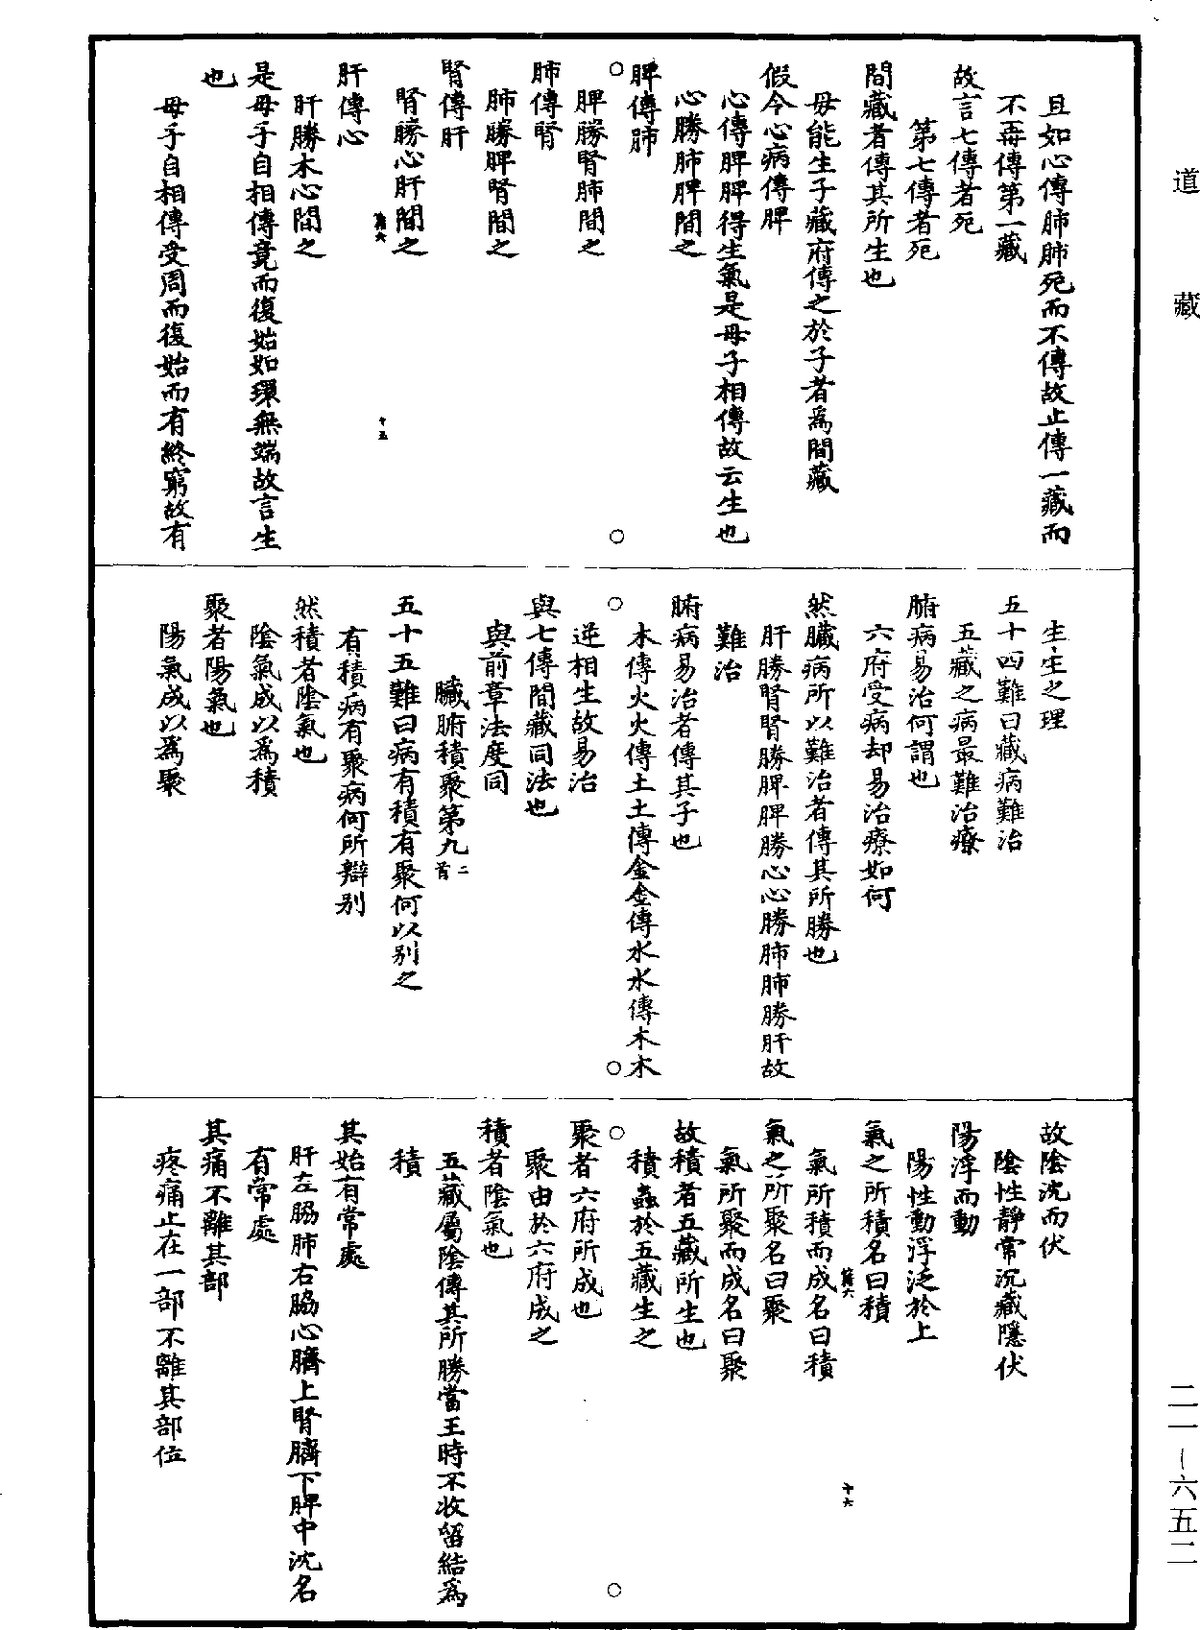 道藏
且如心傳肺肺死而不傳故止傳一藏而
不再傳第一藏
故言七傳者死
第七傳者死
間藏者傳其所生也
母能生子藏府傳之於子者爲間藏
假令心病傳脾
心傳脾脾得生氣是母子相傳故云生也
心勝肺脾間之
脾傳肺
脾勝腎肺間之
肺傳腎
肺勝脾腎間之
腎傳肝
腎勝心肝間之
十五
肝傳心
肝勝木心間之
是母子自相傳竟而復始如環無端故言生
也
母子自相傳受周而復始而有終窮故有
生生之理
五十四難曰藏病難治
五藏之病最難治療
腑病易治何謂也
六府受病却易治療如何
然臟病所以難治者傳其所勝也
肝勝腎腎勝脾脾勝心心勝肺肺勝肝故
難治
腑病易治者傳其子也
木傳火火傳土土傳金金傳水水傳木木
逆相生故易治
與七傳間藏同法也
與前章法度同
臟腑積聚第九二首
五十五難曰病有積有聚何以别之
有積病有聚病何所辯别
然積者陰氣也
陰氣成以爲積
聚者陽氣也
陽氣成以爲聚
故陰沈而伏
陰性靜常沉藏隱伏
陽浮而動
陽性動浮泛於上
氣之所積名曰積
十六
氣所積而成名曰積
氣之所聚名曰聚
氣所聚而成名曰聚
故積者五藏所生也
積蟲於五藏生之
聚者六府所成也
聚由於六府成之
積者陰氣也
五藏屬陰傳其所勝當王時不收留結爲
積
其始有常處
肝左脇肺右脇心臍上腎臍下脾中沈名
有常處
其痛不離其部
疼痛止在一部不離其部位
二一—六五二